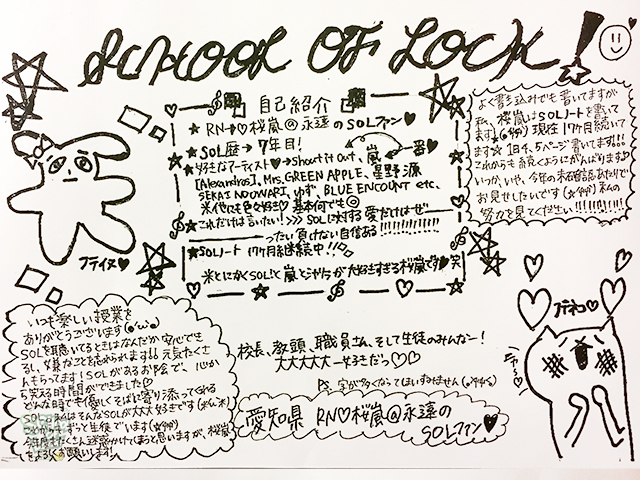 SCHOOL OF LOCK!
自己紹介
★RN→♡桜嵐@永遠のSOLファン♡
★SOL歴→7年目!
★好きなアーティスト♡→Shout it Out、嵐 一番♡
[Alexandros]、Mrs. GREEN APPLE、星野源
SEKAI NO OWARI、ゆず、BLUE ENCOUNT etc.
米他にも色々好き♡基本何でも◎
★これだけは言いたい!>>> SOLに対する愛だけはぜ
ったい負けない自信ある!!!!!!!!!!!
★SOLノート17ヶ月継続中!!
米とにかくSOLと嵐と
大好きすぎる桜嵐です♥笑
よく書き込みでも書いてますが
私、桜嵐はSOLノートを書いて
ます 現在17ヶ月続いて
ます☆ 1日4、5ページ書いてます!!!
これからも続くようにがんばります♡
いつか、いや、今年の未確認あたりで
お見せしたいです 私の
努力を見てください!!!!!!!!
プテイヌ♥
プテネコ♡
いつも楽しい授業を
ありがとうございます
SOLを聴いてるときはなんだか安心でき
るし、嫌なことを忘れられます!! 元気たくさ
んもらってます! SOLがあるお陰で、心か
ら笑える時間ができました♡
どんな時でも優しくそばに寄り添ってくれる
SOL そんなSOLが大大大好きです
ずっと生徒でいます
今年もたくさん迷惑かけてしまうと思いますが、桜嵐
をよろしくお願いします!
校長、教頭、職員さん、そして生徒のみんなー!
大大大大大ー好きだっ♡♡
PS. 字が多くなってほいすみません
愛知県 RN♡桜嵐@永遠の
SOLファン♥